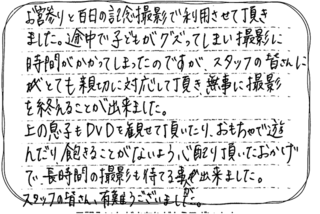 お宮参りと百日の記念撮影で利用させて頂き
ました。途中で子どもがグズってしまい撮影に
時間がかかってしまったのですが、スタッフの皆さんに
はとても親切に対応して頂き無事に撮影
を終えることが出来ました。
上の息子もDVDを観させて頂いたり、おもちゃで遊
んだり飽きることがないよう心配り頂いたおかげ
で、長時間の撮影も待てる事が出来ました。
スタッフの皆さん、有難うございました。